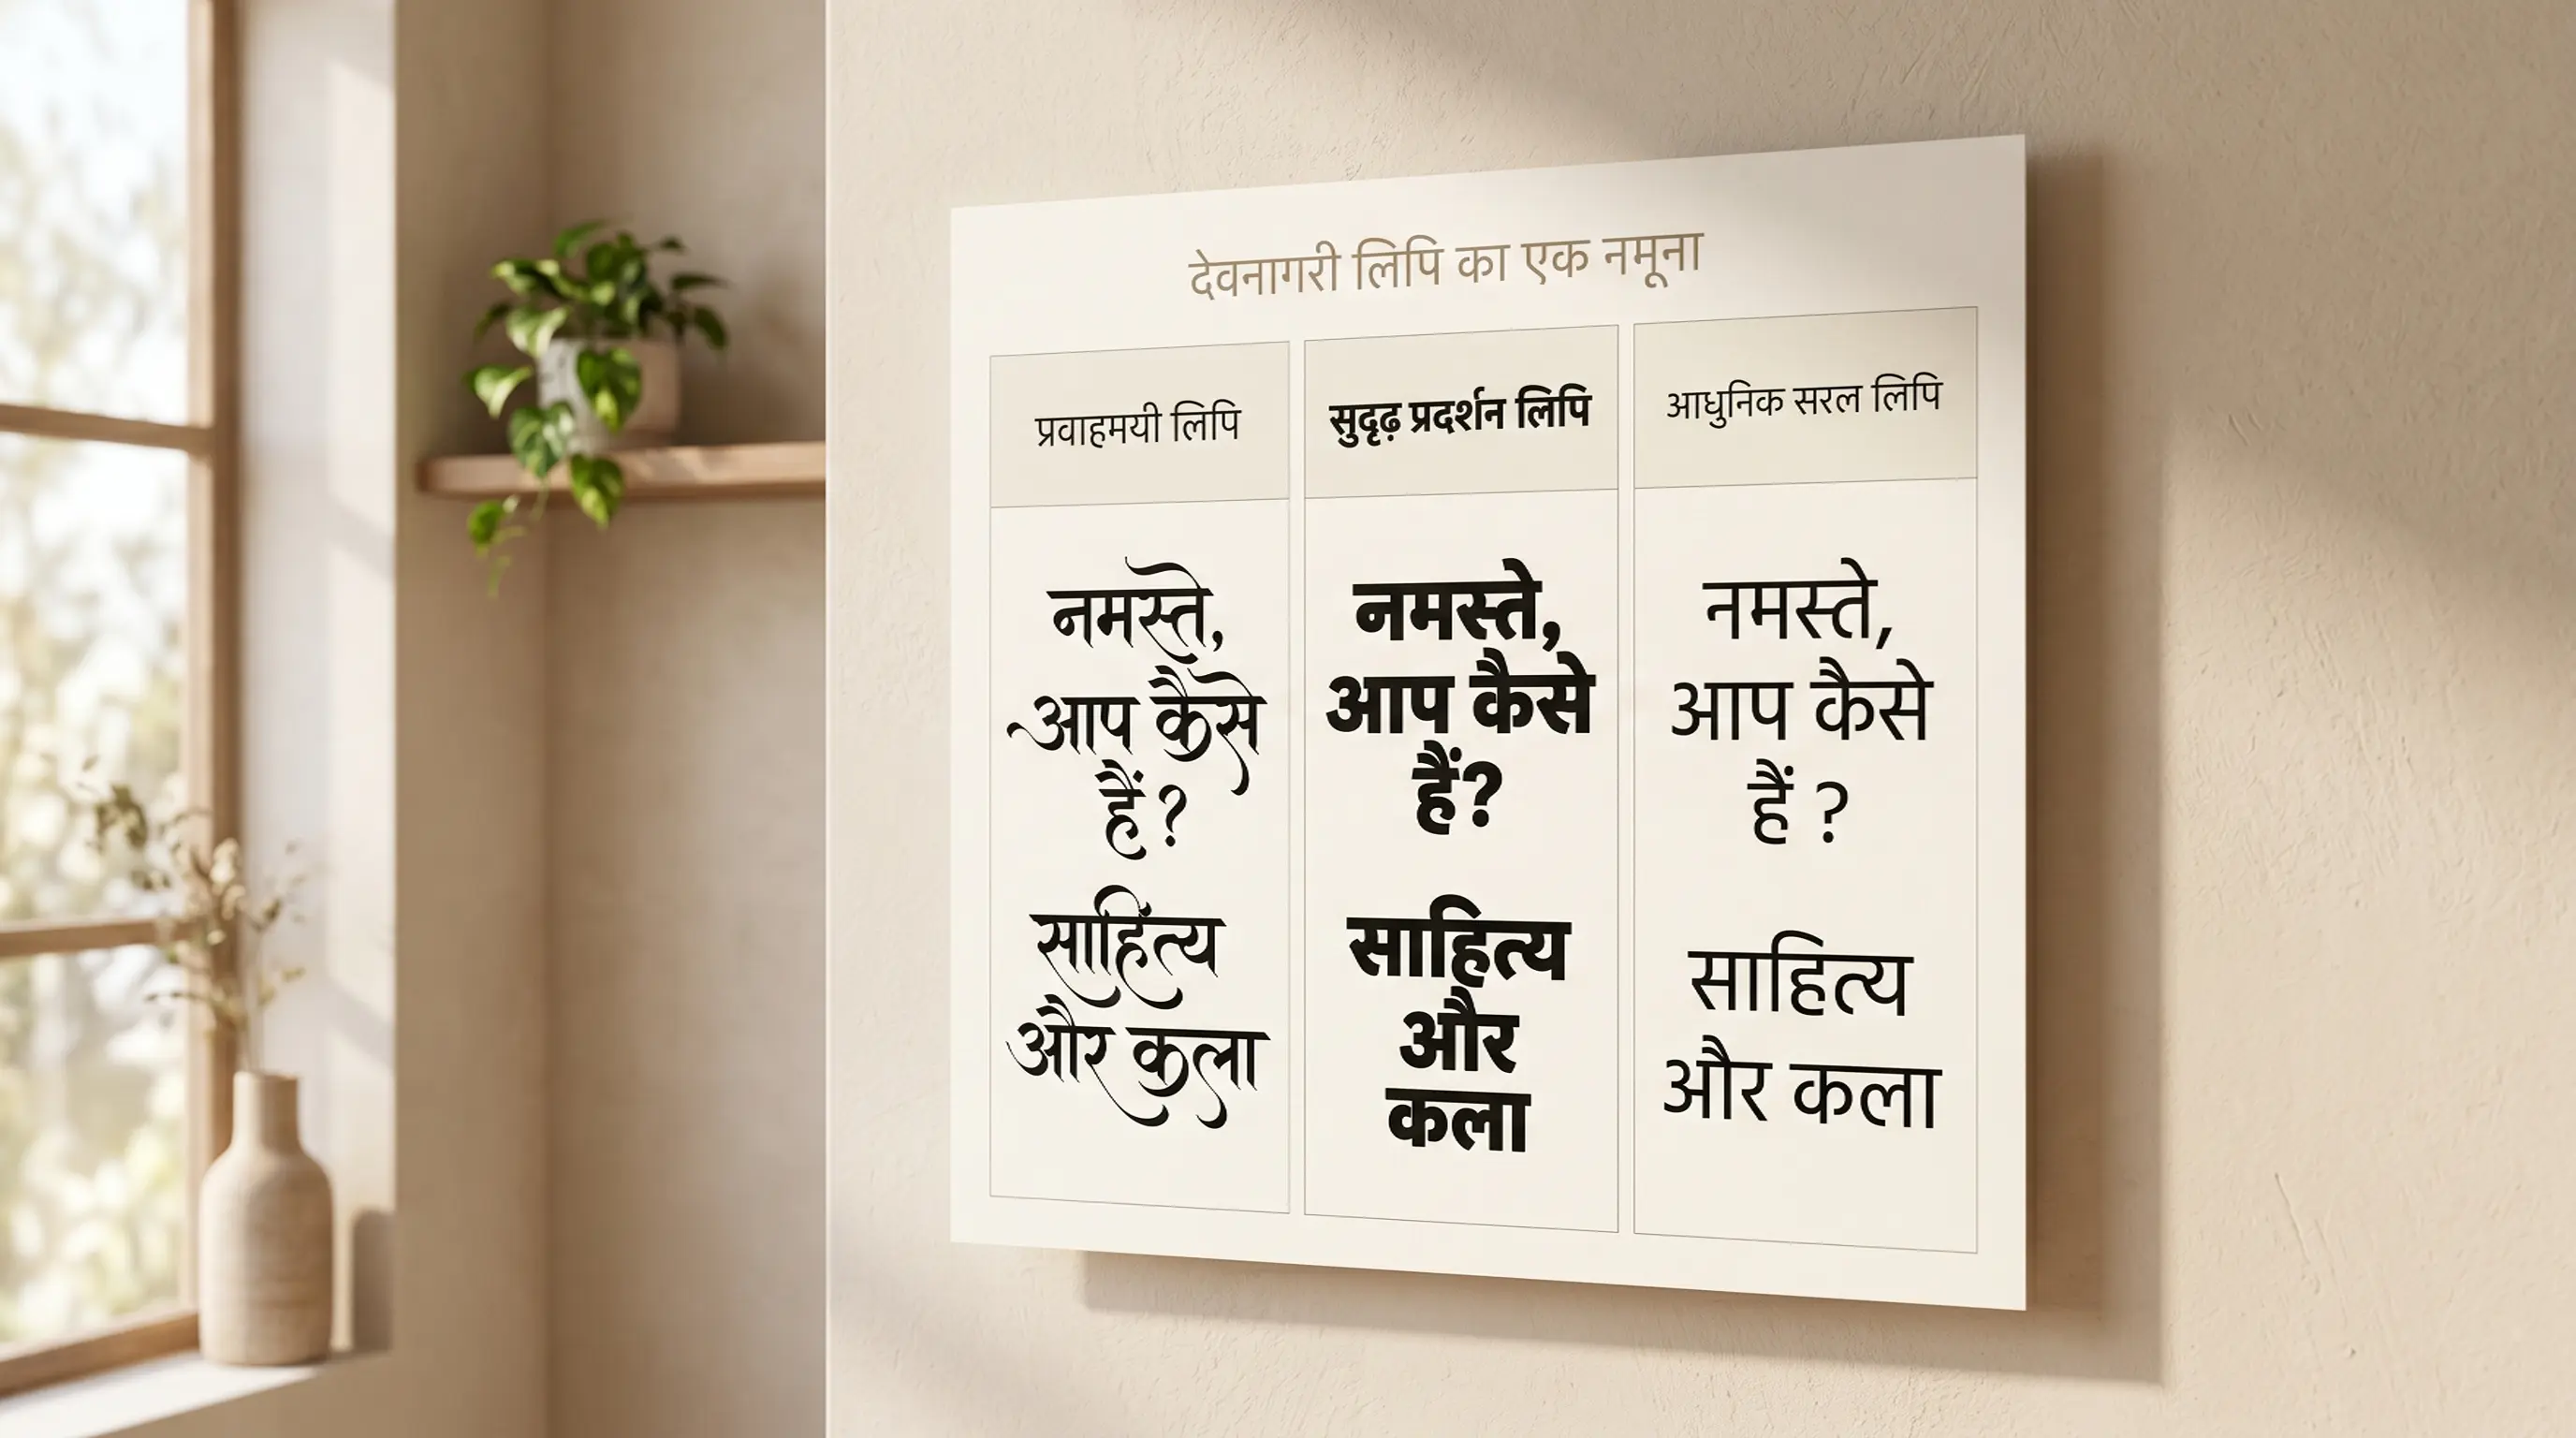 देवनागरी लिपि का एक नमूना
प्रवाहमयी लिपि
नमस्ते,
आप कैसे
हैं?
साहित्य
और कला
सुदृढ़ प्रदर्शन लिपि
नमस्ते,
आप कैसे
हैं?
साहित्य
और
कला
आधुनिक सरल लिपि
नमस्ते,
आप कैसे
हैं ?
साहित्य
और कला